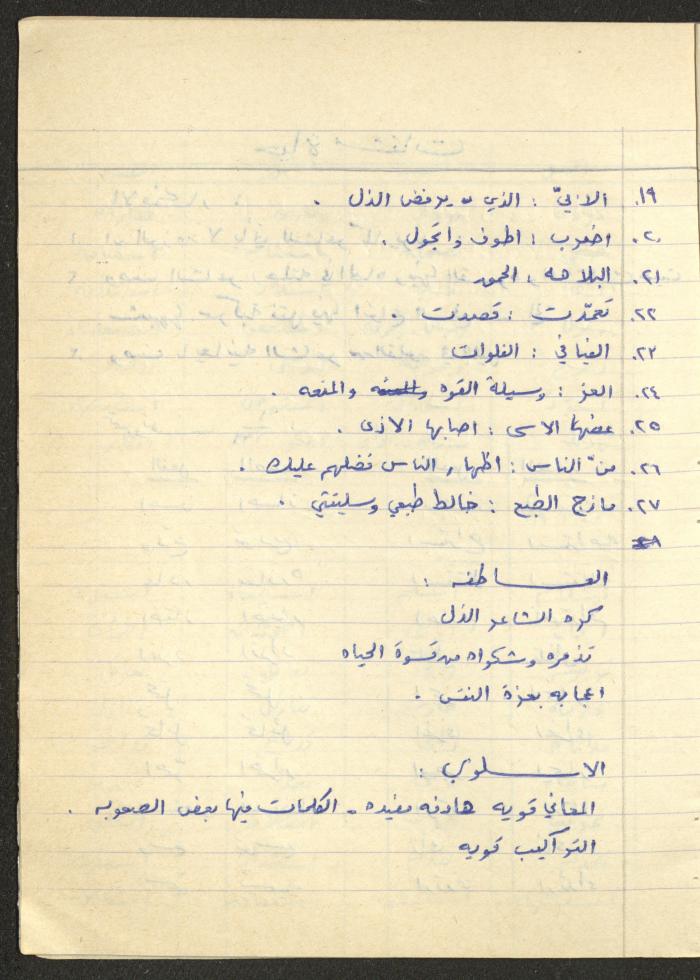 ١٩. الابيّ : الذي يرفض الذل .
٢٠. اضرب : اطوف واتجول .
٢١. البلاهه : الحمق
٢٢. تعمّدت : قصدت .
٢٣. الفيافي : الفلوات
٢٤. العز : وسيلة القوه والمنعه .
٢٥. عضها الاسى : اصابها الاذى .
٢٦. منّ الناس : اظهار الناس فضلهم عليك .
٢٧. مازج الطبع : خالط طبعي وسليقتي .
٢٨
العــــاطفه :
كره الشاعر الذل
تذمره وشكواه من قسوة الحياه
اعجابه بعزة النفس .
الاســـلوب :
المعاني قويه هادفه مفيده . الكلمات فيها بعض الصعوبه .
التراكيب قويه